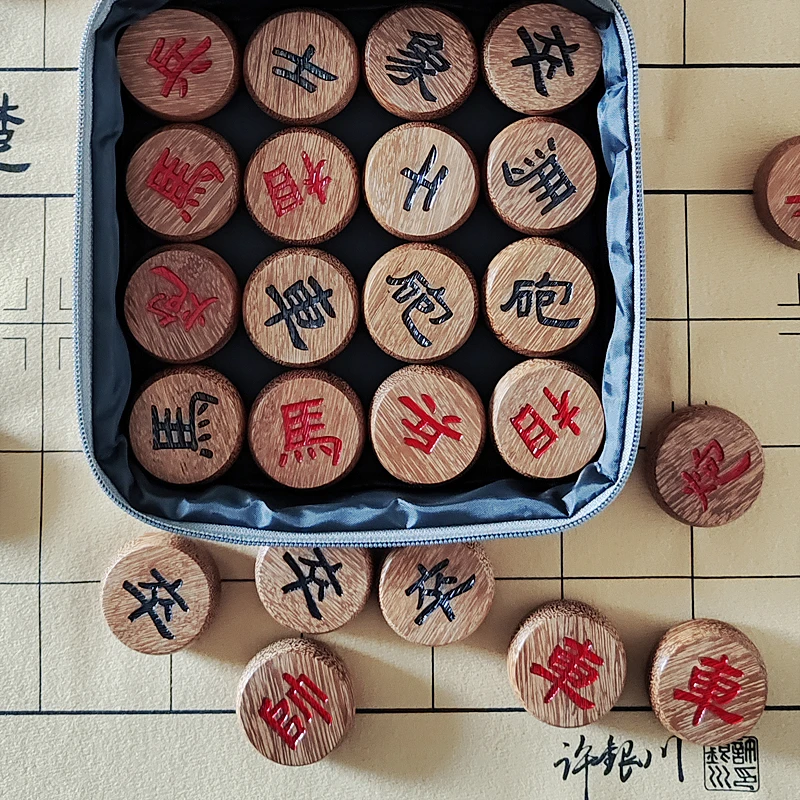 兵 士 象 卒
楚
馬 相 士 馬
炮 車 砲 砲
馬 馬 兵 相
炮
卒 卒 卒
帥 車 車
许銀川